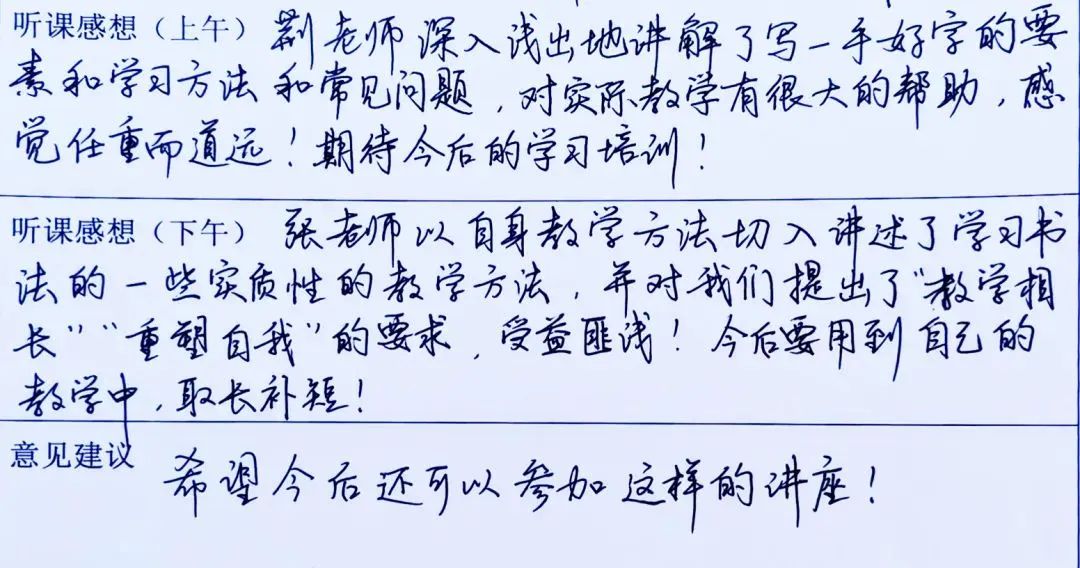 听课感想（上午）荆老师深入浅出地讲解了写一手好字的要
素和学习方法和常见问题，对实际教学有很大的帮助，感
觉任重而道远！期待今后的学习培训！
听课感想（下午）张老师以自身教学方法切入讲述了学习书
法的一些实质性的教学方法，并对我们提出了“教学相
长”“重塑自我”的要求，受益匪浅！今后要用到自己的
教学中，取长补短！
意见建议 希望今后还可以参加这样的讲座！